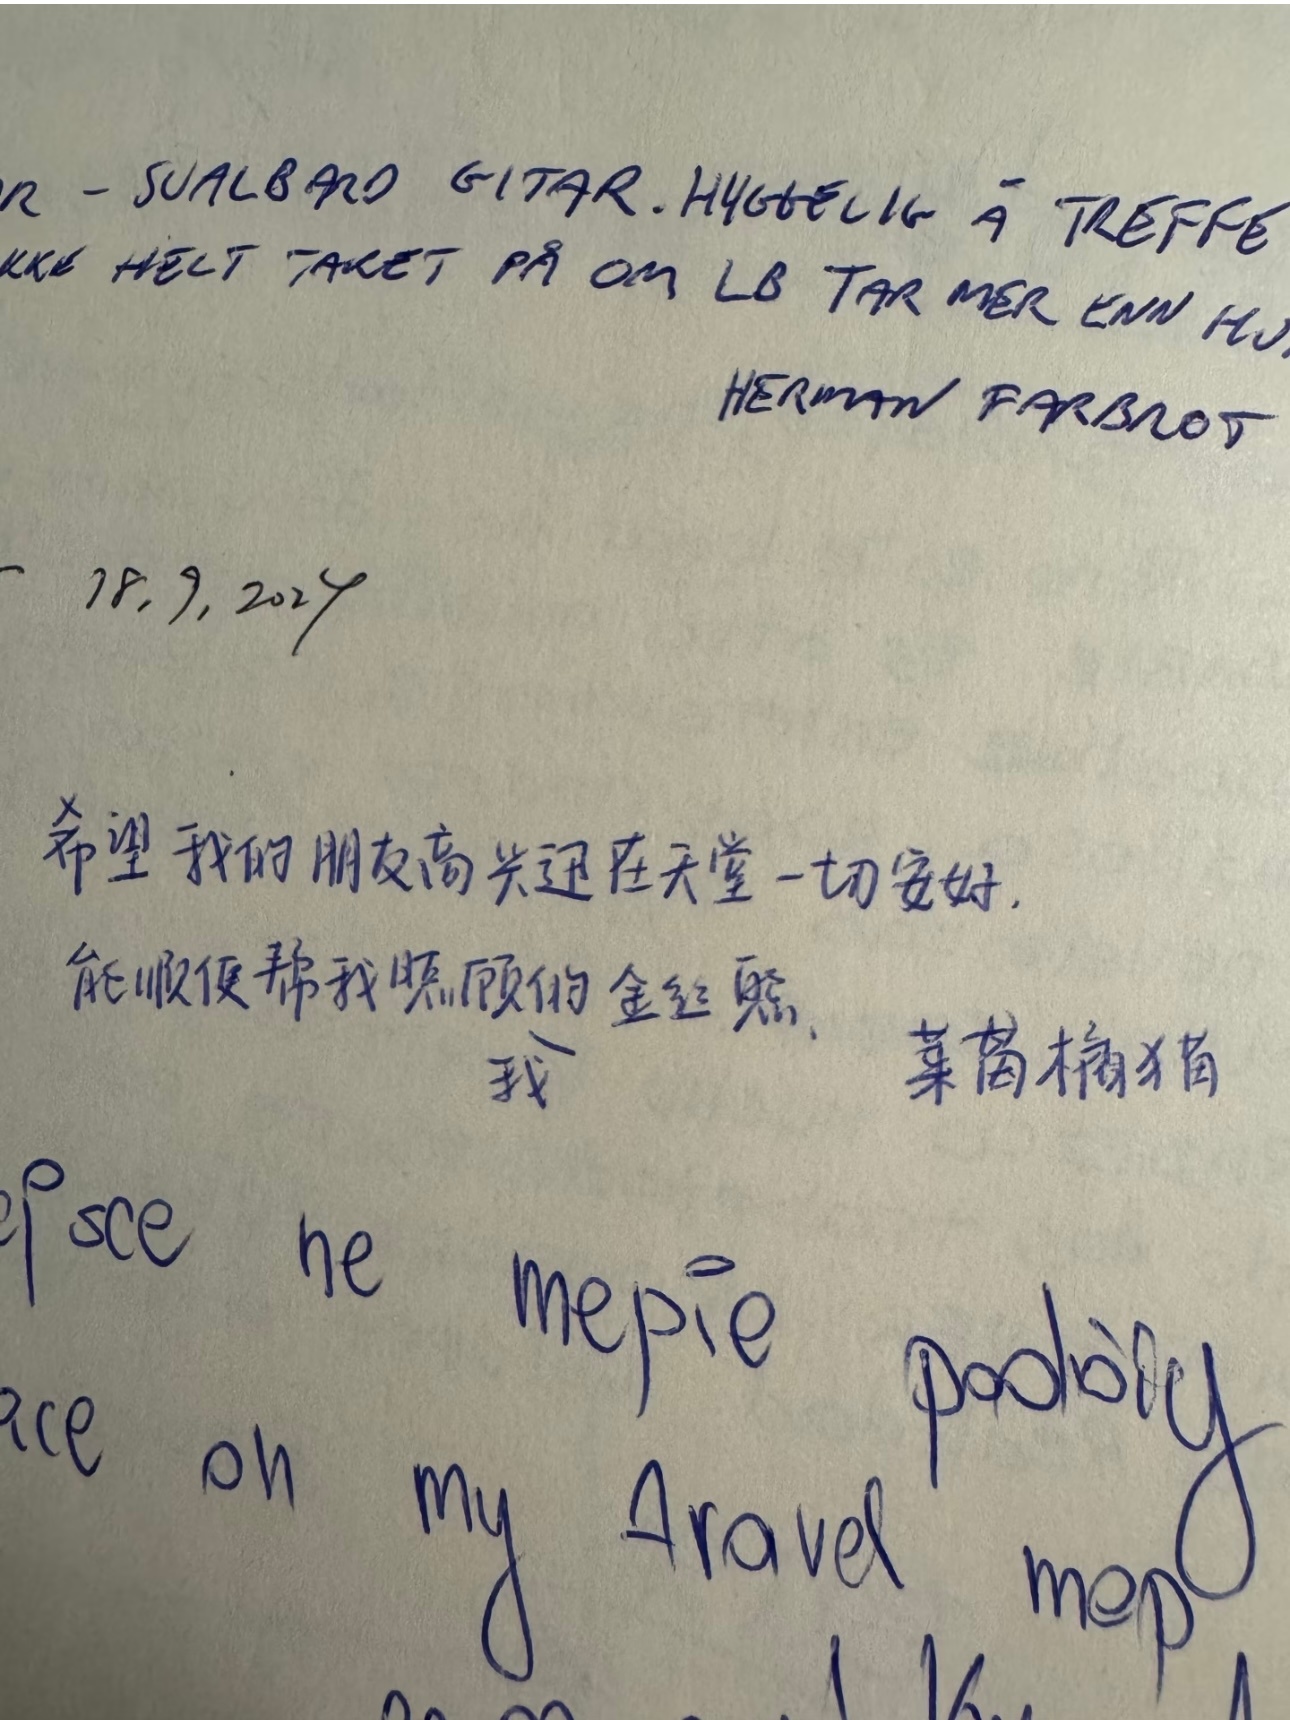 - SVALBARD GITAR. HYGGELIG Å TREFFE
IKKE HELT TAKET PÅ OM LB TAR MER ENN
HERMAN FARBROT
18.9.2024
希望我的朋友高兴还在天堂一切安好.
能顺便帮我照顾的金丝熊.
我
菜茵桶猫
ejsce ne mepie podróży
ace on my travel mep